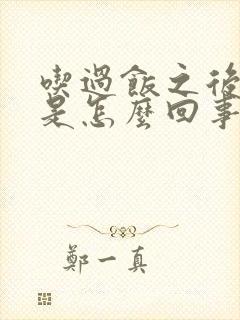 喫過飯之後
是怎麼回事
鄭一真